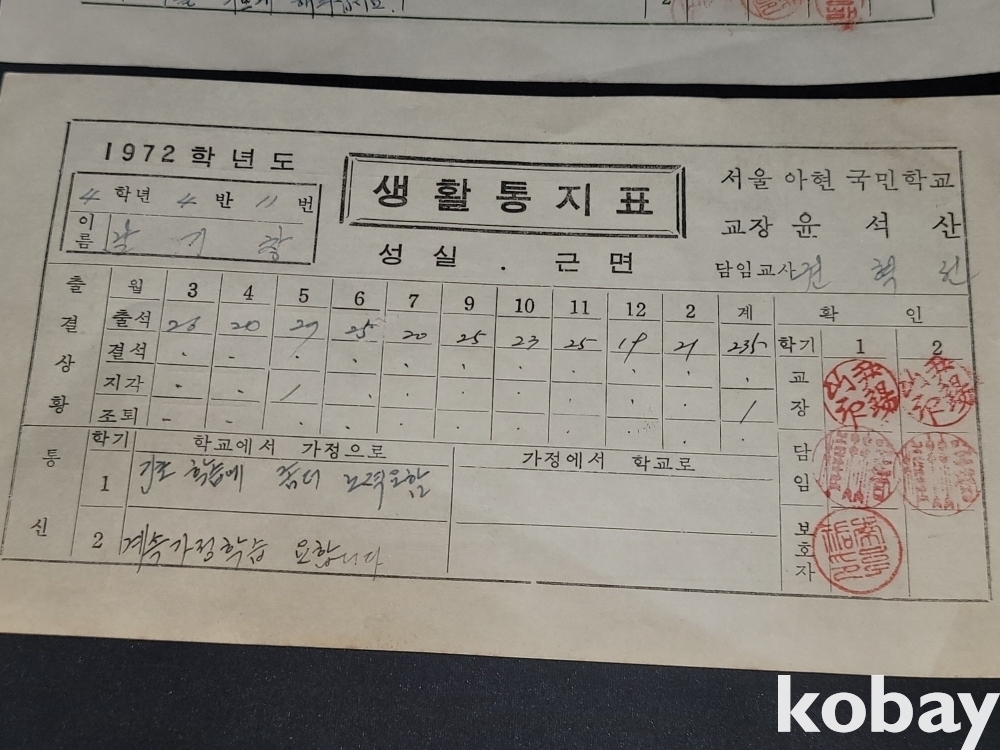 1972 학년도
4 학년 4 반 11 번
이름
생활통지표
성실 . 근면
서울 아현 국민학교
교장 윤 석 산
담임교사
출결상황
월 3 4 5 6 7 9 10 11 12 2 계
출석 26 20 27 25 20 25 23 25 19 21 235
결석
지각
조퇴
확 인
학기 1 2
교장
담임
보호자
통신
학기 학교에서 가정으로 가정에서 학교로
1 기초 학습에 좀더 노력요함
2 계속가정학습 요합니다
kobay